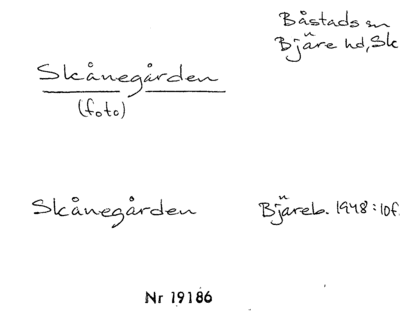 Båstads sn
Bjäre hd, Sk
Skånegården
(foto)
Skånegården
Bjäreb. 1948:10f.
Nr 19186